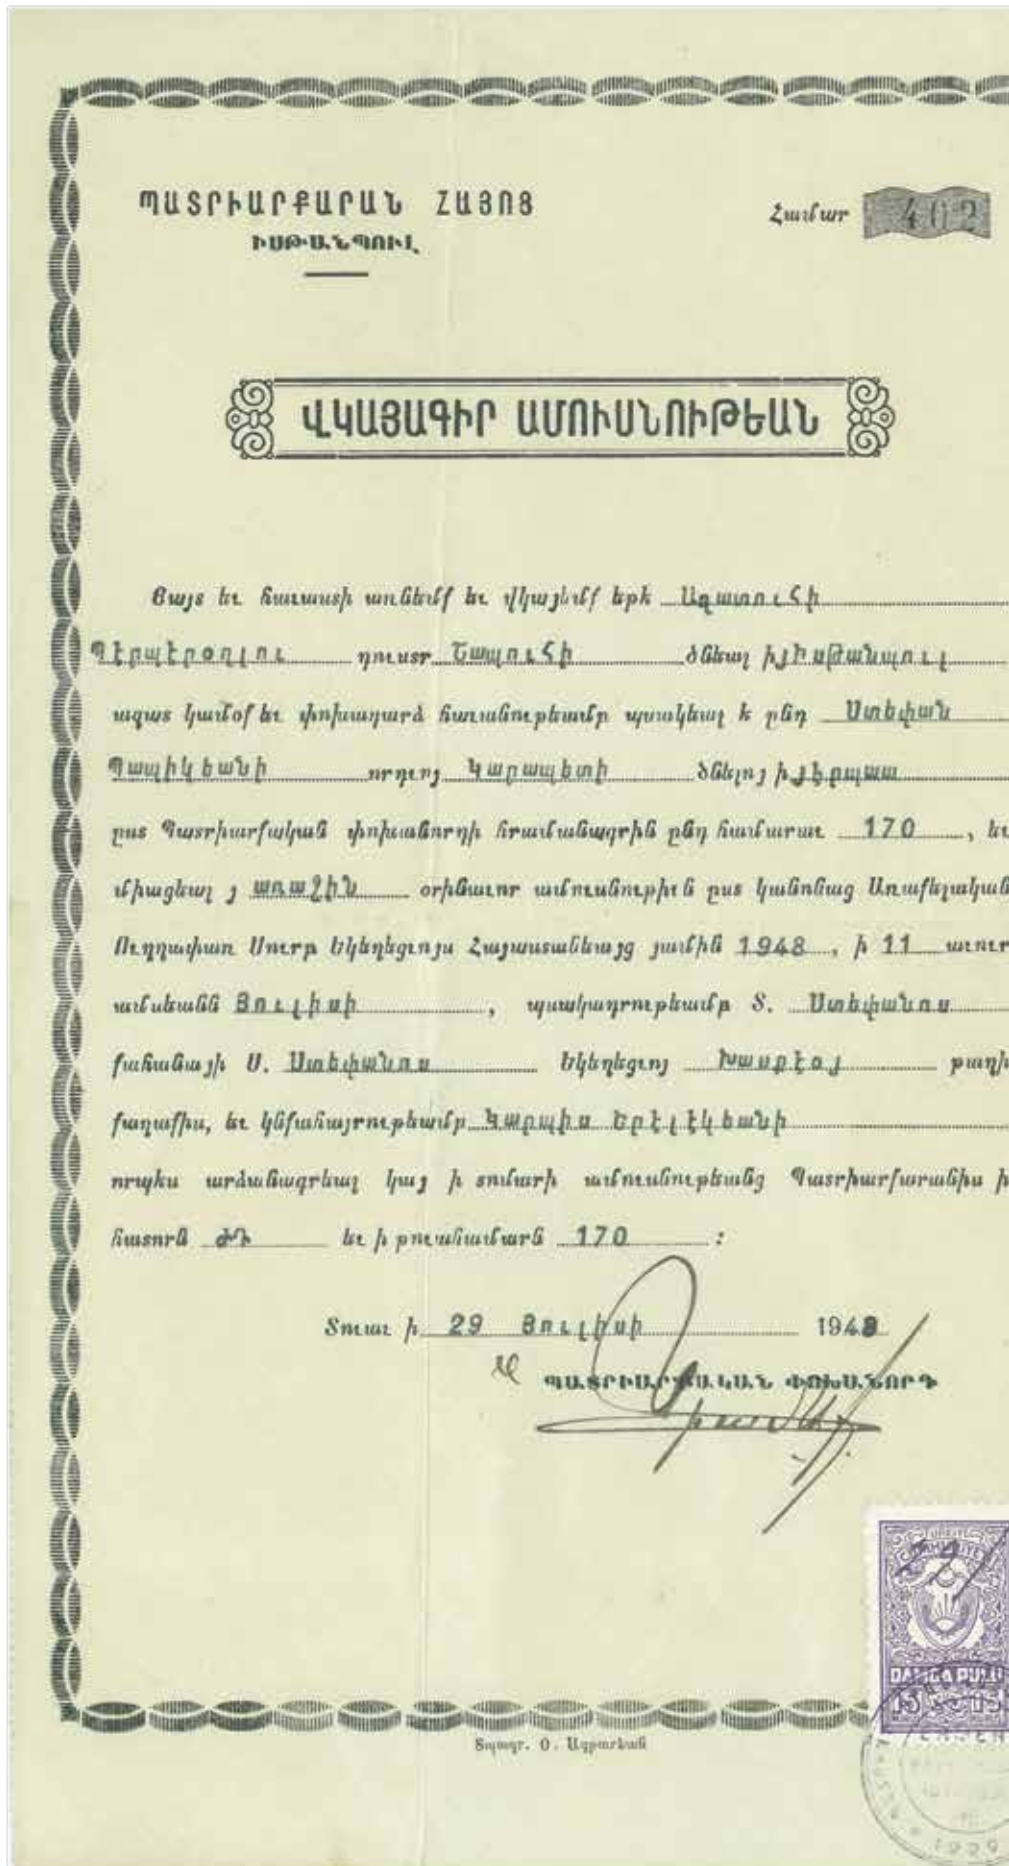 ՊԱՏՐԻԱՐՔԱՐԱՆ ՀԱՅՈՑ
ԻՍԹԱՆՊՈՒԼ
Համար 402
ՎԿԱՅԱԳԻՐ ԱՄՈՒՍՆՈՒԹԵԱՆ
Յայտ եւ հաւաստի առնեմք եւ վկայեմք եթէ Ազատուհի
Պէրպէրօղլու դուստր Շապուհի ծնեալ ի Իսթանպուլ
ազատ կամօք եւ փոխադարձ հաւանութեամբ պսակեալ է ընդ Ստեփան
Պապիկեանի որդւոյ Կարապետի ծնելոյ ի
ըստ Պատրիարքական փոխանորդի հրամանագրին ընդ համարաւ 170, եւ
միացեալ յ առաջին օրինաւոր ամուսնութիւն ըստ կանոնաց Առաքելական
Ուղղափառ Սուրբ Եկեղեցւոյս Հայաստանեայց յամին 1948, ի 11 աւուր
ամսեանն Յուլիսի, պսակադրութեամբ Տ. Ստեփանոս
քահանայի Ս. Ստեփանոս Եկեղեցւոյ Խասքէօյ թաղի
քաղաքիս, եւ կնքահայրութեամբ Կարպիս Երէլէկեանի
որպէս արձանագրեալ կայ ի տոմարի ամուսնութեանց Պատրիարքարանիս ի
հատորն ԺԴ եւ ի թուահամարն 170 :
Տուաւ ի 29 Յուլիսի 1948
ՊԱՏՐԻԱՐՔԱԿԱՆ ՓՈԽԱՆՈՐԴ
DAMGA PULU
15 15
Տպագր. Օ. Ազբարեան